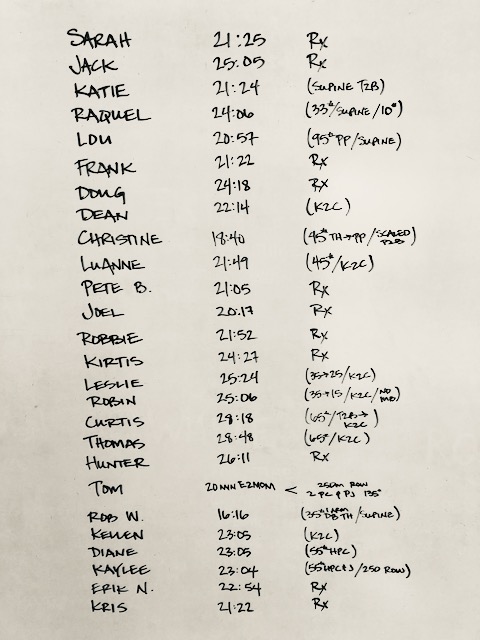 SARAH 21:25 Rx
JACK 25:05 Rx
KATIE 21:24 (SUPINE T2B)
RAQUEL 24:06 (33#/SUPINE/10#)
LOU 20:57 (95# PP/SUPINE)
FRANK 21:22 Rx
DOUG 24:18 Rx
DEAN 22:14 (K2C)
CHRISTINE 18:40 (45# TH→PP/SCALED T2B)
LUANNE 21:49 (45#/K2C)
PETE B. 21:05 Rx
JOEL 20:17 Rx
ROBBIE 21:52 Rx
KIRTIS 24:27 Rx
LESLIE 25:24 (35→25/K2C)
ROBIN 25:06 (35→15/K2C/NO MB)
CURTIS 28:18 (65#/T2B→K2C)
THOMAS 28:48 (65#/K2C)
HUNTER 26:11 Rx
TOM 20 MIN E2MOM < 250m ROW
2 PC & PJ 135#
ROB W. 16:16 (35# 1 ARM DB TH/SUPINE)
KELLEN 23:05 (K2C)
DIANE 23:05 (55# HPC)
KAYLEE 23:04 (55# HPC+J/250 ROW)
ERIK N. 22:54 Rx
KRIS 21:22 Rx